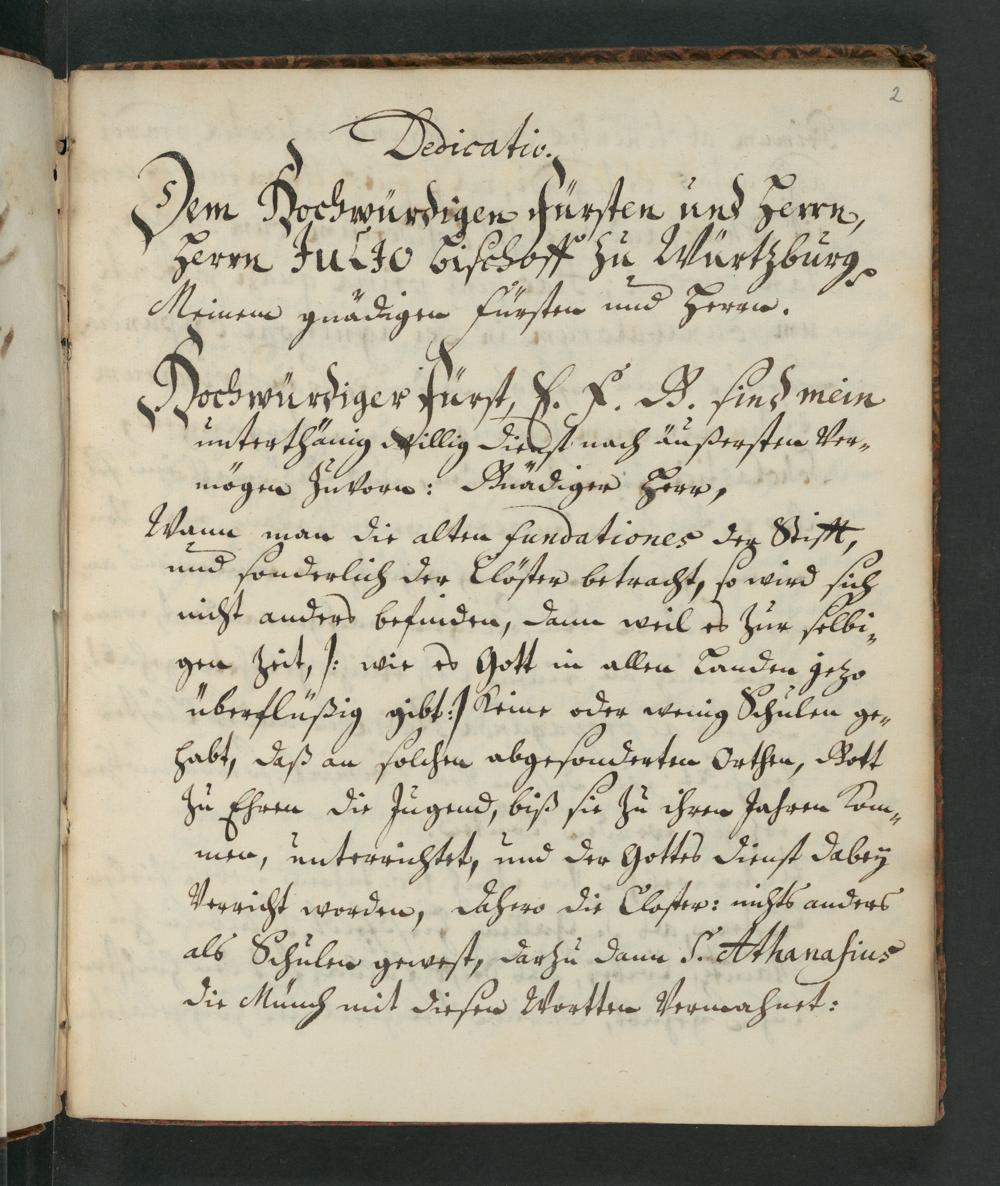 2
Dedicatio.
Dem Hochwürdigen Fürsten und Herrn,
Herrn JULIO Bischoff zu Würtzburg,
Meinem gnädigen Fürsten und Herrn.
Hochwürdiger Fürst, E. F. G. sind mein
unterthänig willig dienst nach äußersten Ver-
mögen zuvorn: Gnädiger Herr,
Wann man die alten fundationes der Stifft,
und sonderlich der Clöster betracht, so wird sich
nicht anders befinden, dann weil es zur selbi-
gen Zeit, /: wie es Gott in allen Landen jetzo
überflüßig gibt :/ keine oder wenig Schulen ge-
habt, daß an solchen abgesonderten Orthen, Gott
zu Ehren die Jugend, biß sie zu ihren Jahren kom-
men, unterrichtet, und der Gottes dienst dabey
Verricht worden, dahero die Closter: nichts anders
als Schulen gewest, darzu dann S. Athanasius
die Münch mit diesen Wortten Vermahnet: